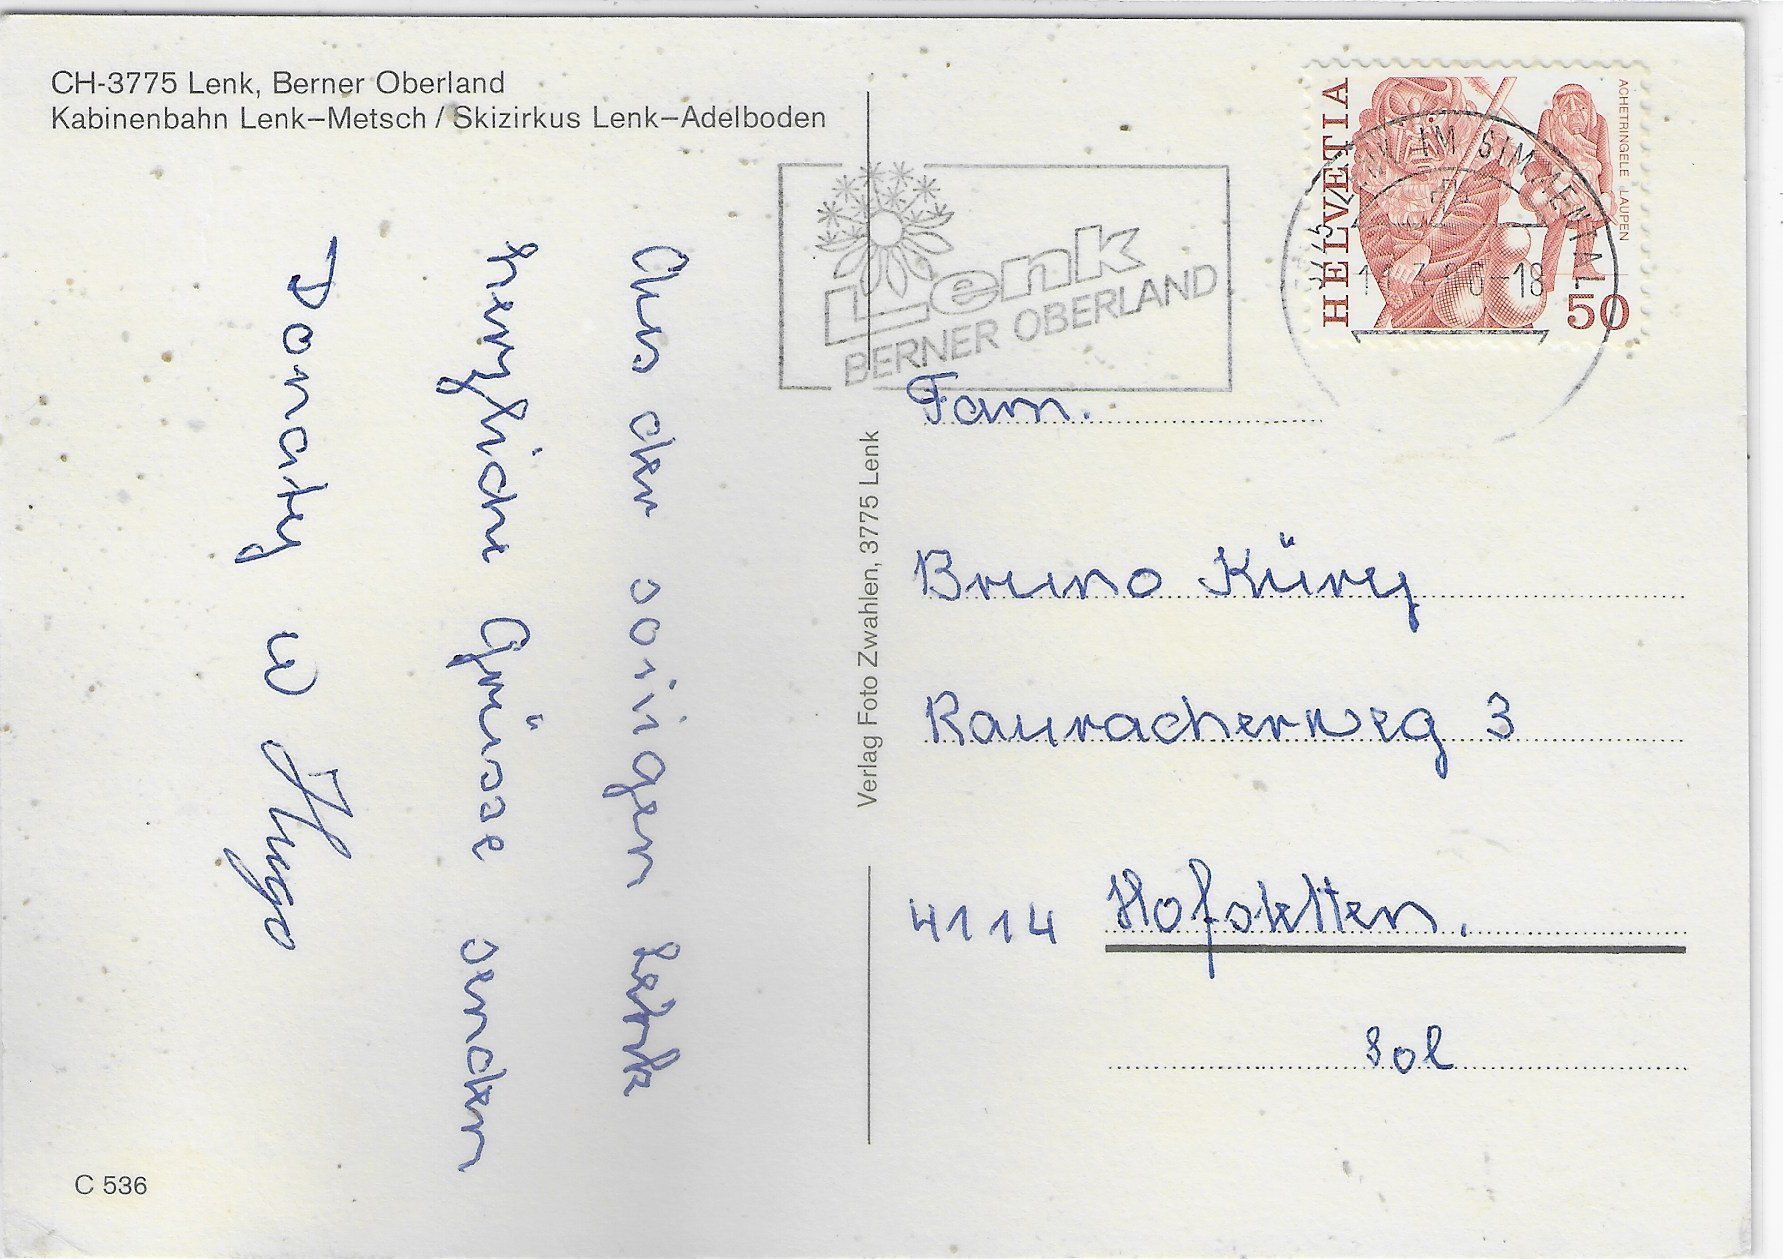 CH-3775 Lenk, Berner Oberland
Kabinenbahn Lenk–Metsch / Skizirkus Lenk–Adelboden
Aus der sonnigen Lenk
herzliche Grüsse senden
Hugo
C 536
Verlag Foto Zwahlen, 3775 Lenk
Lenk
BERNER OBERLAND
HELVETIA
ACHETRINGELE LAUPEN
50
3775 LENK IM SIMMENTAL
-18
Fam.
Bruno Küry
Rauracherweg 3
4114 Hofstetten.
Sol